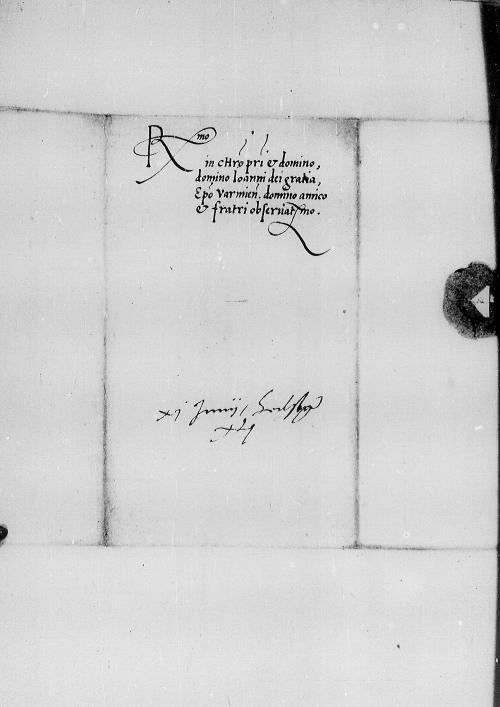 Rmo
in chro pri & domino,
domino Ioanni dei gratia,
Epo Varmien. domino amico
& fratri observatmo.
xj Junij,